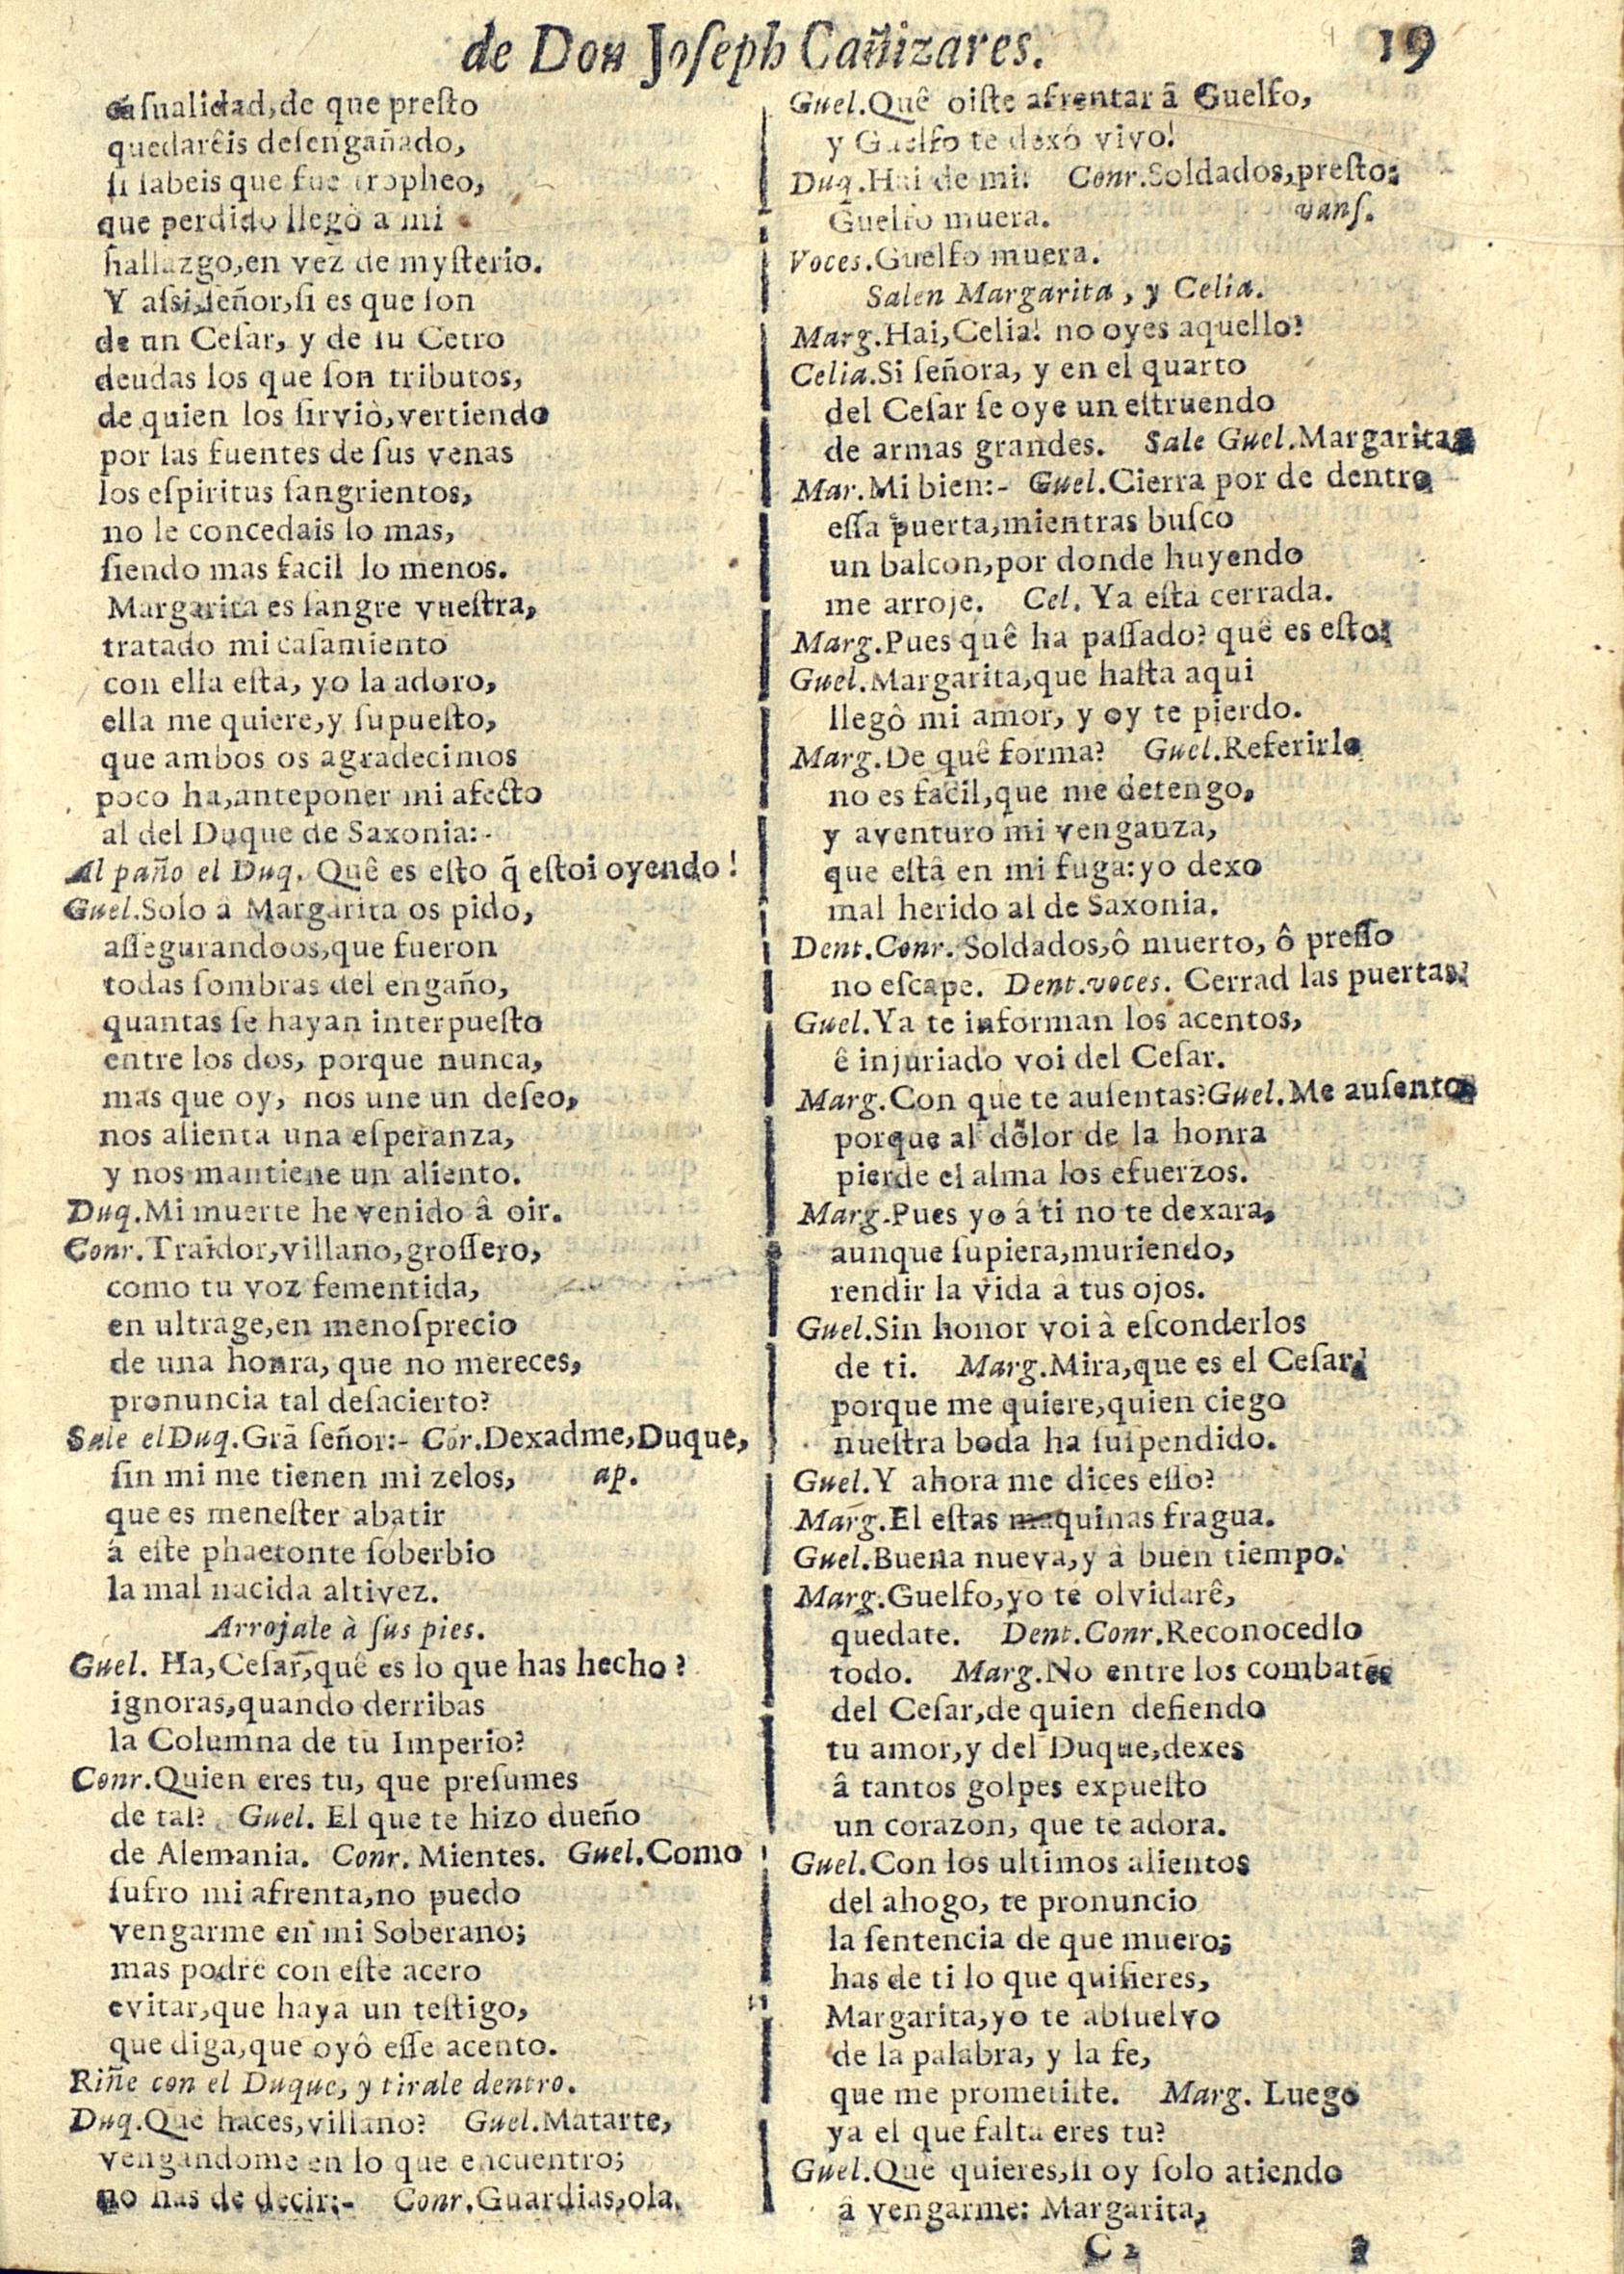 de Don Joseph Cañizares. 19
casualidad, de que presto
quedarêis desengañado,
si sabeis que fue tropheo,
que perdido llegô a mi
hallazgo, en vez de mysterio.
Y assi, señor, si es que son
de un Cesar, y de su Cetro
deudas los que son tributos,
de quien los sirviò, vertiendo
por las fuentes de sus venas
los espiritus sangrientos,
no le concedais lo mas,
siendo mas facil lo menos.
Margarita es sangre vuestra,
tratado mi casamiento
con ella està, yo la adoro,
ella me quiere, y supuesto,
que ambos os agradecimos
poco ha, anteponer mi afecto
al del Duque de Saxonia:-
Al paño el Duq. Quê es esto q̃ estoi oyendo!
Guel. Solo â Margarita os pido,
assegurandoos, que fueron
todas sombras del engaño,
quantas se hayan interpuesto
entre los dos, porque nunca,
mas que oy, nos une un deseo,
nos alienta una esperanza,
y nos mantiene un aliento.
Duq. Mi muerte he venido â oir.
Conr. Traidor, villano, grossero,
como tu voz fementida,
en ultrage, en menosprecio
de una honra, que no mereces,
pronuncia tal desacierto?
Sale el Duq. Grã señor:- Cor. Dexadme, Duque,
sin mi me tienen mi zelos, ap.
que es menester abatir
â este phaetonte soberbio
la mal nacida altivez.
Arrojale à sus pies.
Guel. Ha, Cesar, quê es lo que has hecho?
ignoras, quando derribas
la Columna de tu Imperio?
Conr. Quien eres tu, que presumes
de tal? Guel. El que te hizo dueño
de Alemania. Conr. Mientes. Guel. Como
sufro mi afrenta, no puedo
vengarme en mi Soberano;
mas podrê con este acero
evitar, que haya un testigo,
que diga, que oyô esse acento.
Riñe con el Duque, y tirale dentro.
Duq. Quê haces, villano? Guel. Matarte,
vengandome en lo que encuentro;
no has de decir:- Conr. Guardias, ola.
Guel. Quê oiste afrentar â Guelfo,
y Guelfo te dexô vivo!
Duq. Hai de mi! Conr. Soldados, presto:
Guelfo muera. vans.
Voces. Guelfo muera.
Salen Margarita, y Celia.
Marg. Hai, Celia! no oyes aquello?
Celia. Si señora, y en el quarto
del Cesar se oye un estruendo
de armas grandes. Sale Guel. Margarita
Mar. Mi bien:- Guel. Cierra por de dentro
essa puerta, mientras busco
un balcon, por donde huyendo
me arroje. Cel. Ya està cerrada.
Marg. Pues quê ha passado? quê es esto?
Guel. Margarita, que hasta aqui
llegô mi amor, y oy te pierdo.
Marg. De quê forma? Guel. Referirlo
no es facil, que me detengo,
y aventuro mi venganza,
que estâ en mi fuga: yo dexo
mal herido al de Saxonia.
Dent. Conr. Soldados, ô muerto, ô presso
no escape. Dent. voces. Cerrad las puertas.
Guel. Ya te informan los acentos,
ê injuriado voi del Cesar.
Marg. Con quê te ausentas? Guel. Me ausento
porque al dolor de la honra
pierde el alma los efuerzos.
Marg. Pues yo â ti no te dexara,
aunque supiera, muriendo,
rendir la vida â tus ojos.
Guel. Sin honor voi â esconderlos
de ti. Marg. Mira, que es el Cesar,
porque me quiere, quien ciego
nuestra boda ha suspendido.
Guel. Y ahora me dices esso?
Marg. El estas maquinas fragua.
Guel. Buena nueva, y â buen tiempo.
Marg. Guelfo, yo te olvidarê,
quedate. Dent. Conr. Reconocedlo
todo. Marg. No entre los combates
del Cesar, de quien defiendo
tu amor, y del Duque, dexes
â tantos golpes expuesto
un corazon, que te adora.
Guel. Con los ultimos alientos
del ahogo, te pronuncio
la sentencia de que muero;
has de ti lo que quisieres,
Margarita, yo te absuelvo
de la palabra, y la fe,
que me prometiste. Marg. Luego
ya el que falta eres tu?
Guel. Quê quieres, si oy solo atiendo
â vengarme: Margarita,
C 2